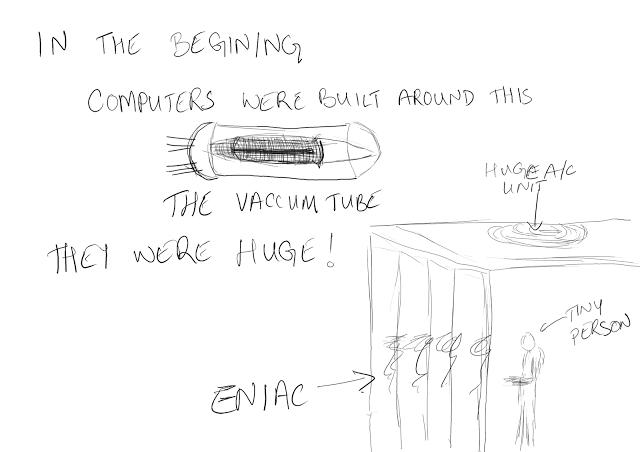 IN THE BEGINING
COMPUTERS WERE BUILT AROUND THIS
THE VACCUM TUBE
THEY WERE HUGE!
HUGE A/C
UNIT
TINY
PERSON
ENIAC